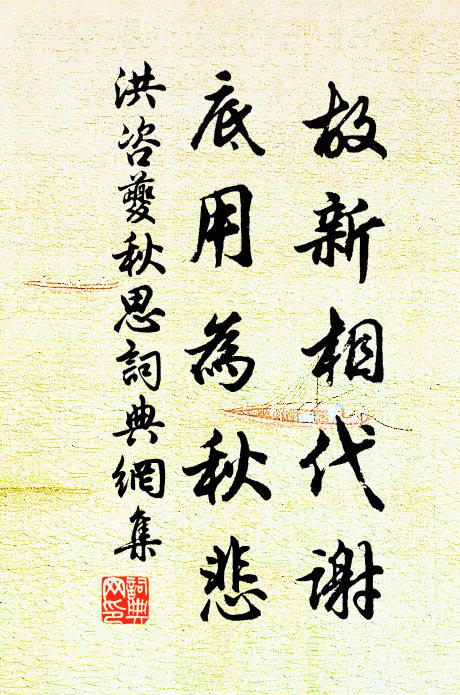 故新相代謝
底用為秋悲
洪咨夔秋思詞典網集
詞典網印